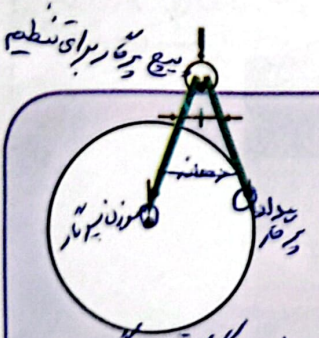 پیچ پرگار برای تنظیم
دهانه
سوزن پرگار
مداد
پرگار